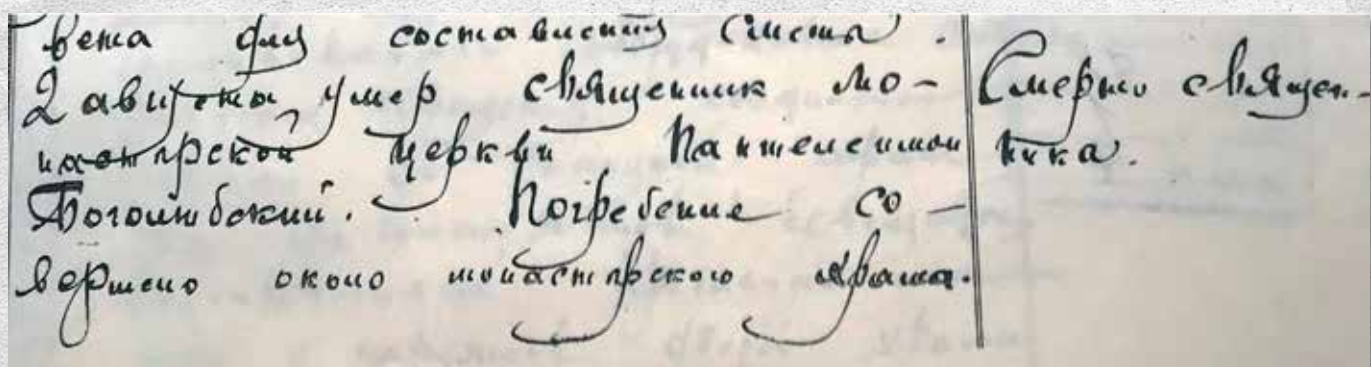 вета для составления сметы.
2 августа умер священник мо-
настырской церкви Пантелеимон
Боголюбский. Погребение со-
вершено около монастырского храма.
Смерть священ-
ника.